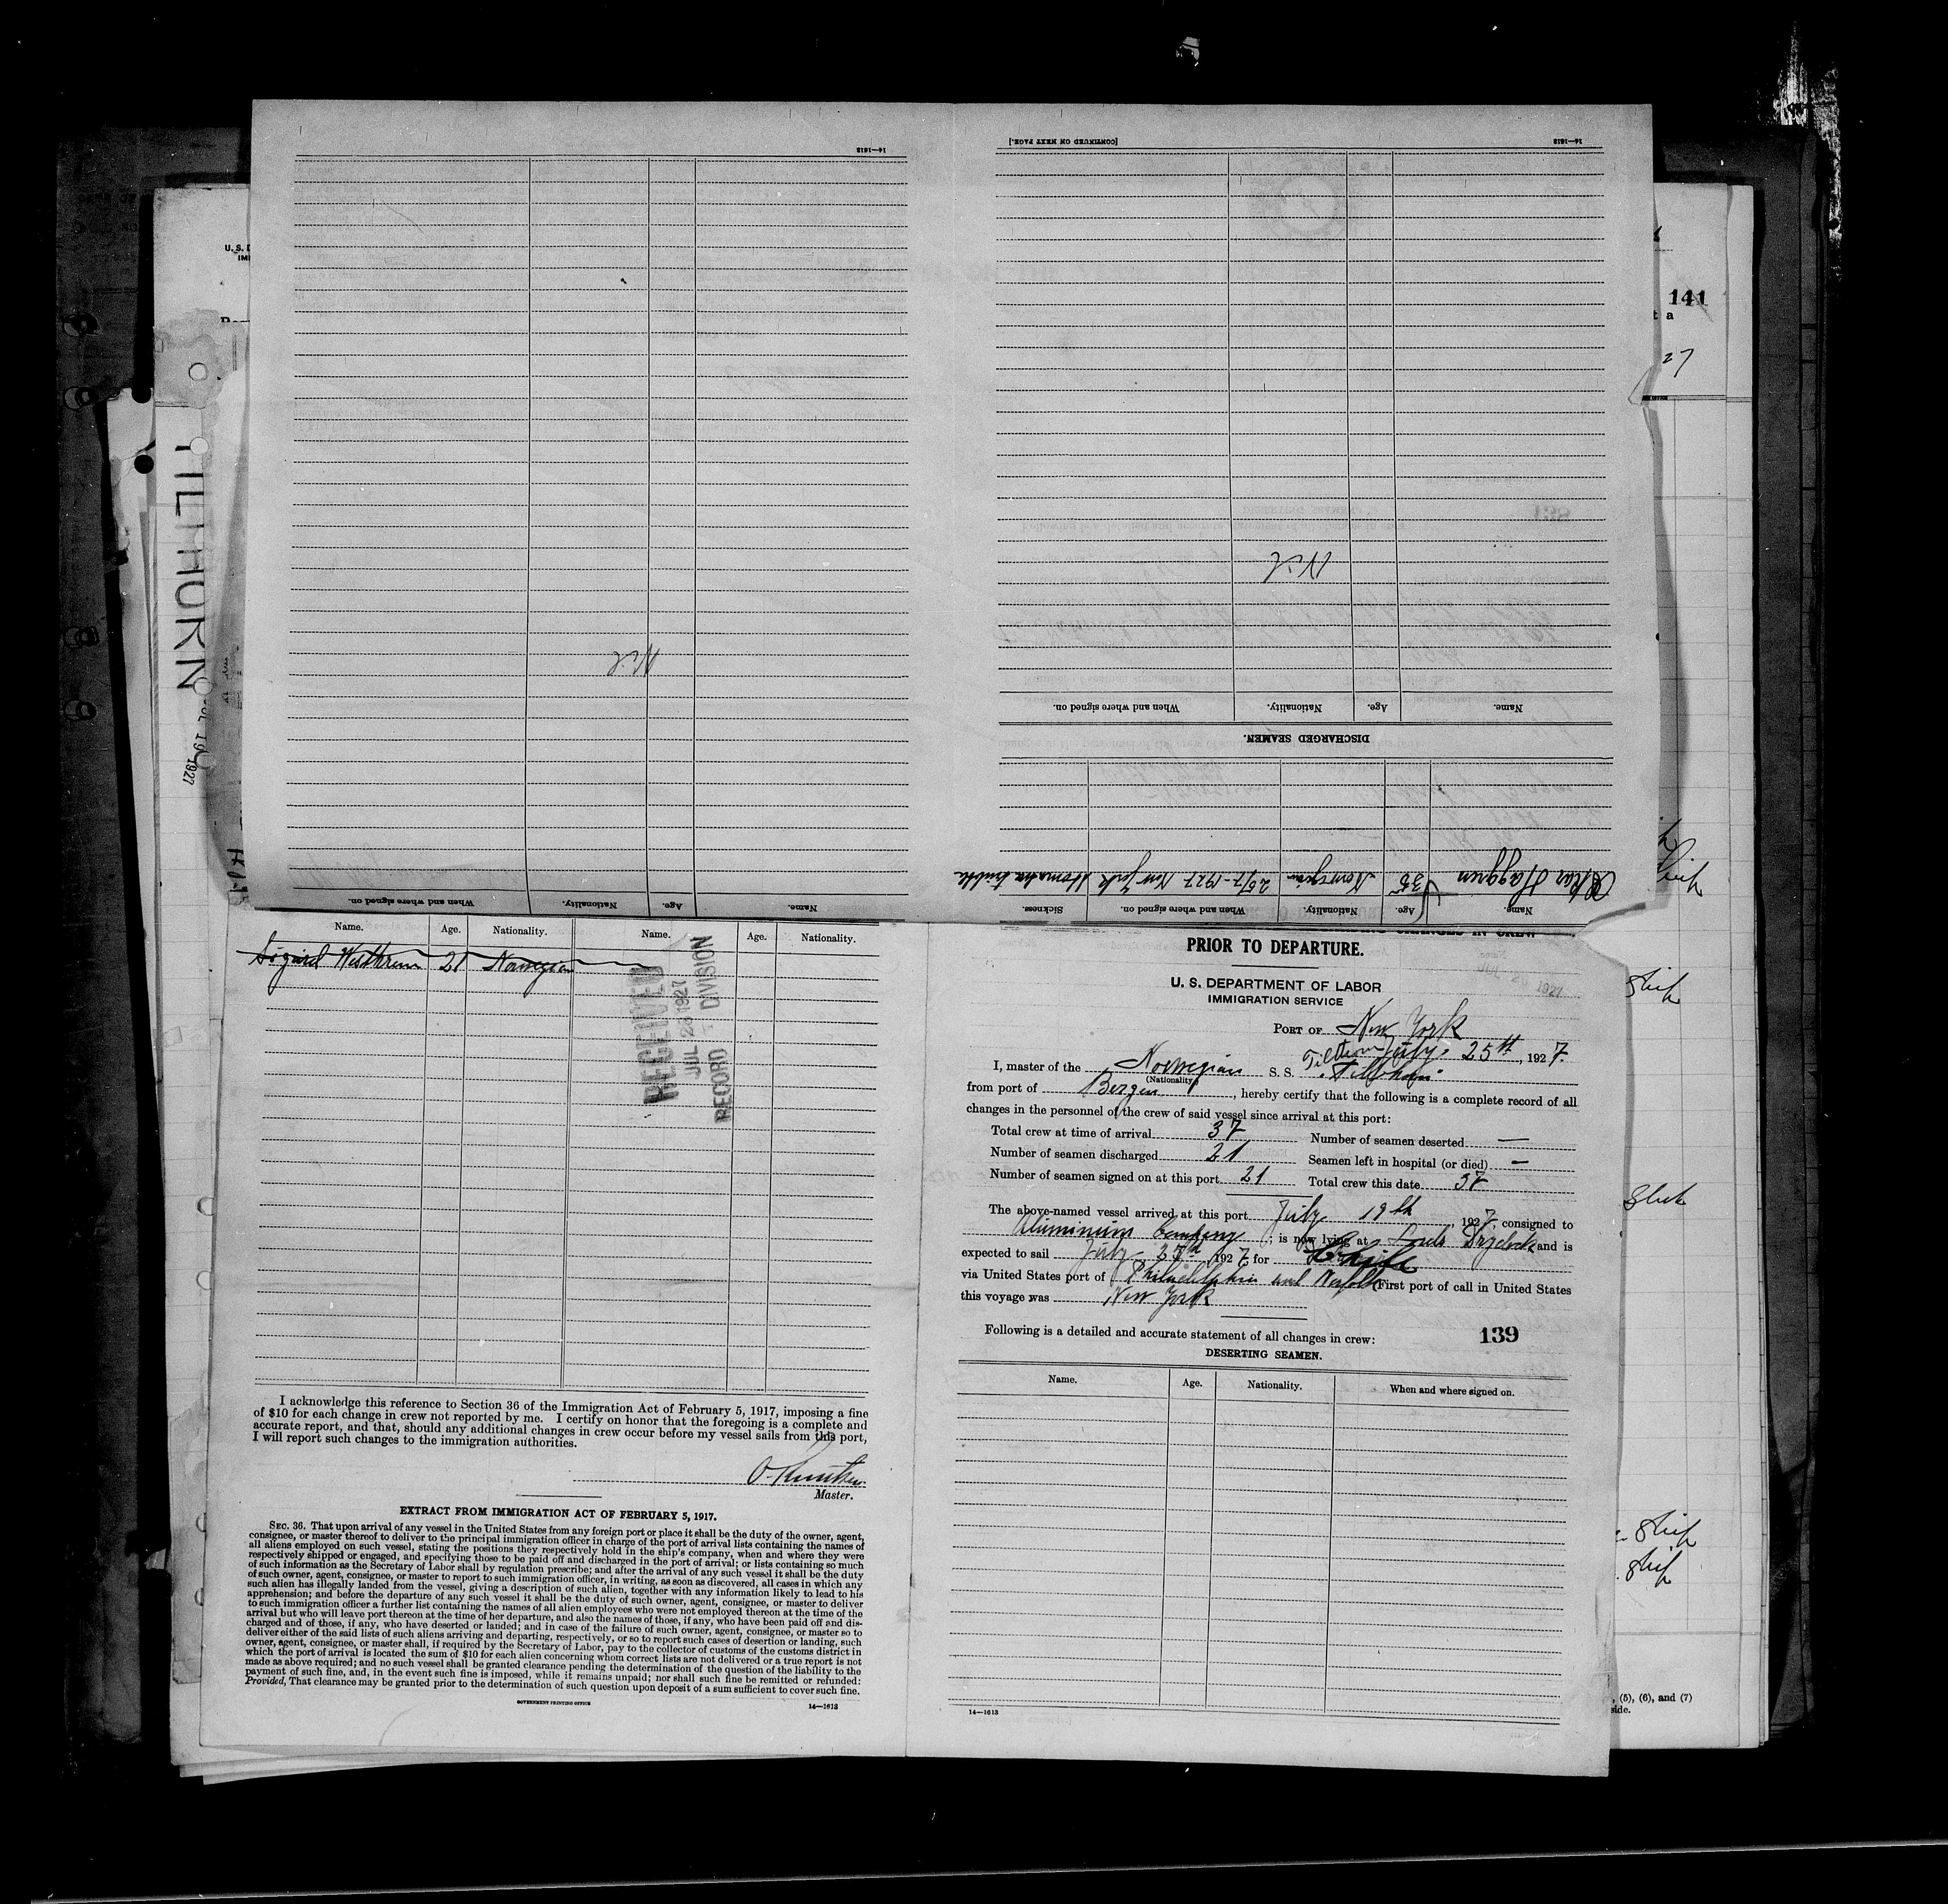 14—1613
[CONTINUED ON NEXT PAGE.]
14—1613
U. S. D
IMI
141
t a
27
Nil
Nil
When and where signed on. Nationality. Age. Name.
DISCHARGED SEAMEN.
1927
Haggren 35 Norwegian 25/7-1927 New York
Name. Age. Nationality. When and where signed on. Sickness.
Name. Age. Nationality. When and where signed on.
Name. Age. Nationality. Name. Age. Nationality.
Sigurd 21 Norwegian
RECEIVED
JUL 28 1927
RECORD DIVISION
PRIOR TO DEPARTURE.
U. S. DEPARTMENT OF LABOR
IMMIGRATION SERVICE
PORT OF New York
July 25th, 1927.
I, master of the Norwegian S. S.
(Nationality)
from port of Bergen, hereby certify that the following is a complete record of all
changes in the personnel of the crew of said vessel since arrival at this port:
Total crew at time of arrival 37 Number of seamen deserted —
Number of seamen discharged 21 Seamen left in hospital (or died) —
Number of seamen signed on at this port 21 Total crew this date 37
The above-named vessel arrived at this port July 19th, 1927, consigned to
Aluminium Company; is now lying at Drydock and is
expected to sail July 1927 for
via United States port of Philadelphia and Norfolk First port of call in United States
this voyage was New York
Following is a detailed and accurate statement of all changes in crew: 139
DESERTING SEAMEN.
Name. Age. Nationality. When and where signed on.
14—1613
I acknowledge this reference to Section 36 of the Immigration Act of February 5, 1917, imposing a fine
of $10 for each change in crew not reported by me. I certify on honor that the foregoing is a complete and
accurate report, and that, should any additional changes in crew occur before my vessel sails from this port,
I will report such changes to the immigration authorities.
O. Knutsen
Master.
EXTRACT FROM IMMIGRATION ACT OF FEBRUARY 5, 1917.
SEC. 36. That upon arrival of any vessel in the United States from any foreign port or place it shall be the duty of the owner, agent,
consignee, or master thereof to deliver to the principal immigration officer in charge of the port of arrival lists containing the names of
all aliens employed on such vessel, stating the positions they respectively hold in the ship's company, when and where they were
respectively shipped or engaged, and specifying those to be paid off and discharged in the port of arrival; or lists containing so much
of such information as the Secretary of Labor shall by regulation prescribe; and after the arrival of any such vessel it shall be the duty
of such owner, agent, consignee, or master to report to such immigration officer, in writing, as soon as discovered, all cases in which any
such alien has illegally landed from the vessel, giving a description of such alien, together with any information likely to lead to his
apprehension; and before the departure of any such vessel it shall be the duty of such owner, agent, consignee, or master to deliver
to such immigration officer a further list containing the names of all alien employees who were not employed thereon at the time of the
arrival but who will leave port thereon at the time of her departure, and also the names of those, if any, who have been paid off and dis-
charged and of those, if any, who have deserted or landed; and in case of the failure of such owner, agent, consignee, or master so to
deliver either of the said lists of such aliens arriving and departing, respectively, or so to report such cases of desertion or landing, such
owner, agent, consignee, or master shall, if required by the Secretary of Labor, pay to the collector of customs of the customs district in
which the port of arrival is located the sum of $10 for each alien concerning whom correct lists are not delivered or a true report is not
made as above required; and no such vessel shall be granted clearance pending the determination of the question of the liability to the
payment of such fine, and, in the event such fine is imposed, while it remains unpaid; nor shall such fine be remitted or refunded:
Provided, That clearance may be granted prior to the determination of such question upon deposit of a sum sufficient to cover such fine.
GOVERNMENT PRINTING OFFICE 14—1613
, (5), (6), and (7)
side.